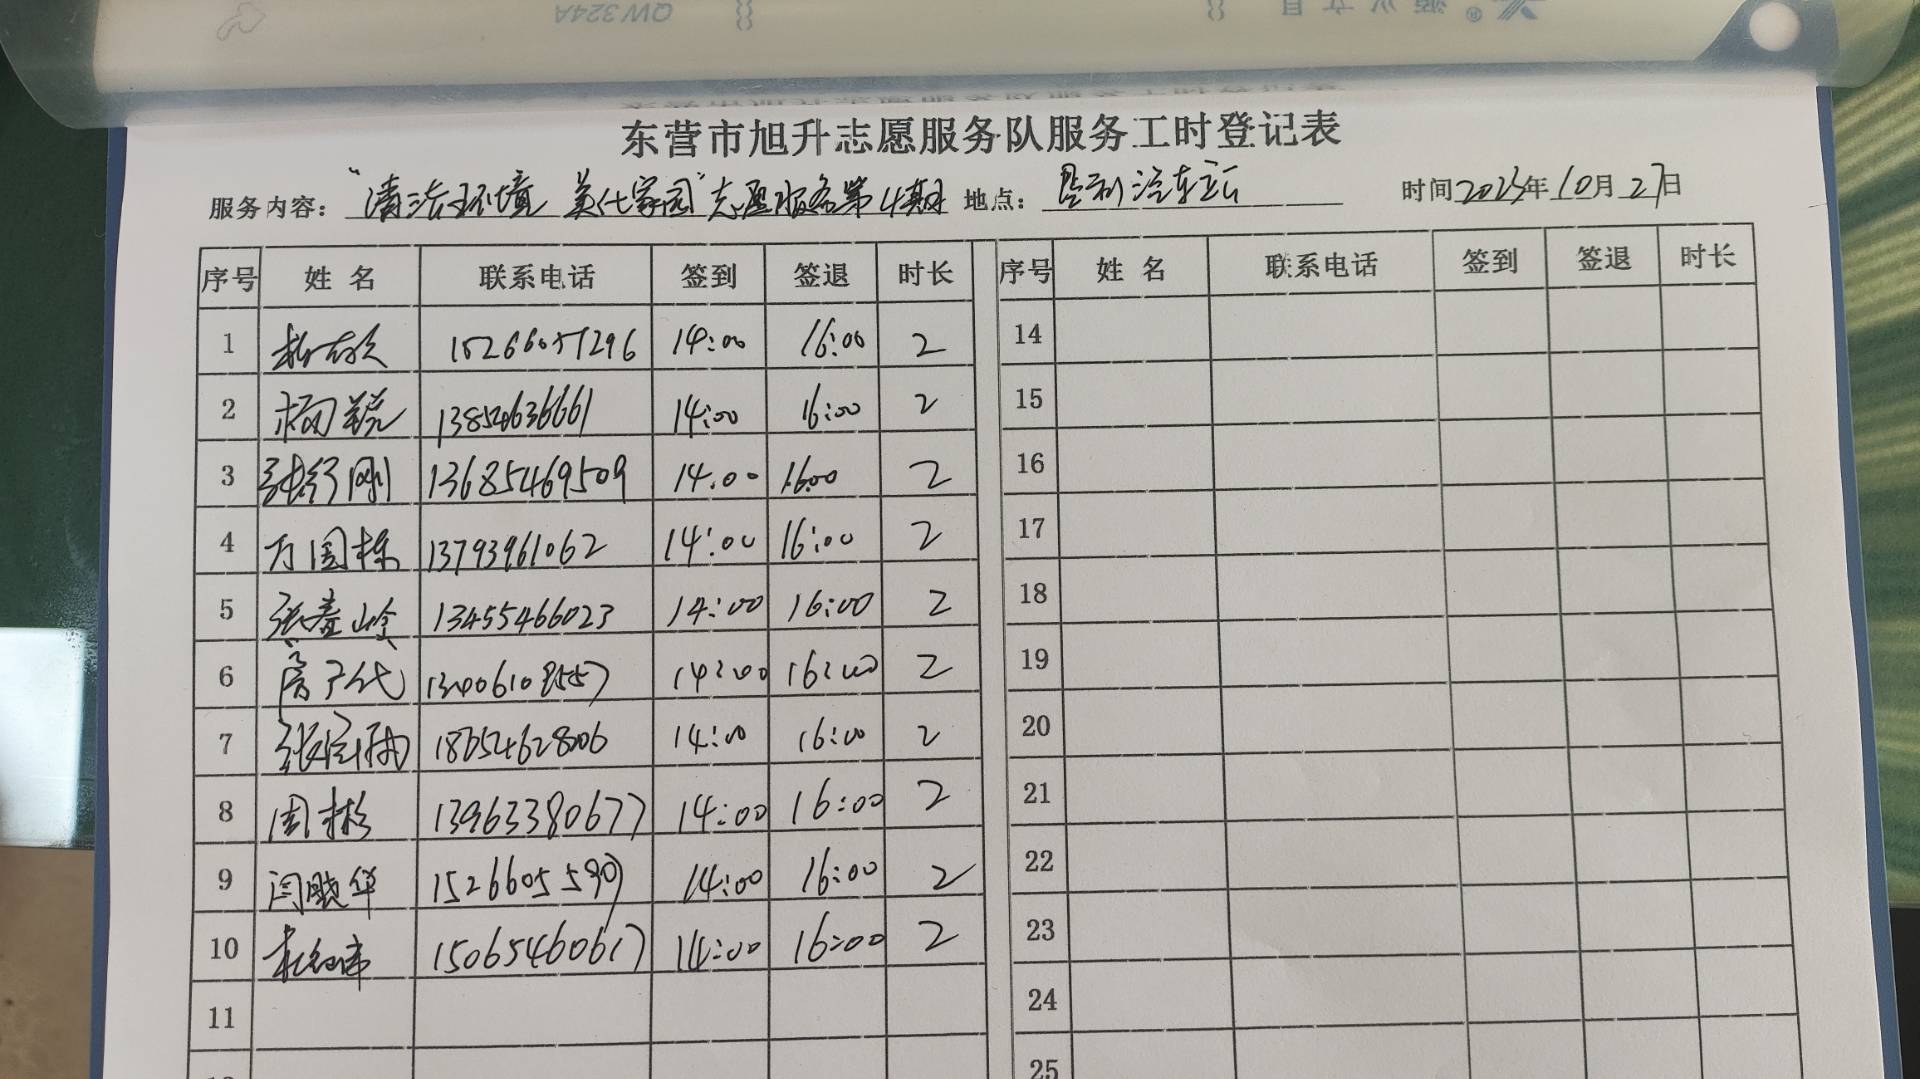 QW324A
东营市旭升志愿服务队服务工时登记表
服务内容：“清洁环境 美化家园”志愿服务第4期 地点：胜利汽车站 时间2023年10月27日
序号 姓名 联系电话 签到 签退 时长 序号 姓名 联系电话 签到 签退 时长
1 15266057296 14:00 16:00 2 14
2 杨锐 13854636661 14:00 16:00 2 15
3 13685469509 14:00 16:00 2 16
4 万国栋 13793961062 14:00 16:00 2 17
5 张春岭 13455466023 14:00 16:00 2 18
6 14:00 16:00 2 19
7 14:00 16:00 2 20
8 周彬 13963380677 14:00 16:00 2 21
9 闫晓华 15266055909 14:00 16:00 2 22
10 15065460617 14:00 16:00 2 23
11 24
25